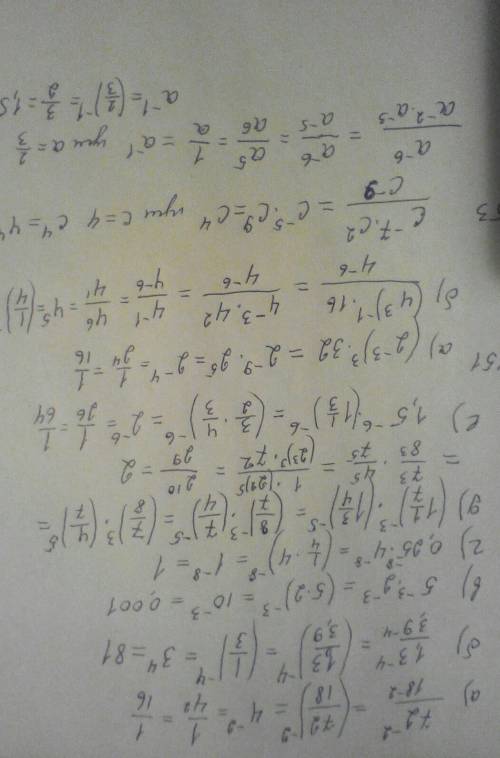 а) 72⁻²/18⁻² = (72/18)⁻² = 4⁻² = 1/4² = 1/16
б) 1,3⁻⁴/3,9⁻⁴ = (1,3/3,9)⁻⁴ = (1/3)⁻⁴ = 3⁴ = 81
в) 5⁻³·2⁻³ = (5·2)⁻³ = 10⁻³ = 0,001
г) 0,25⁻⁸·4⁻⁸ = (1/4·4)⁻⁸ = 1⁻⁸ = 1
д) (1 1/7)⁻³·(1 3/4)⁻⁵ = (8/7)⁻³·(7/4)⁻⁵ = (7/8)³·(4/7)⁵ =
= 7³/8³·4⁵/7⁵ = 1·(2²)⁵/(2³)³·7² = 2¹⁰/2⁹ = 2
е) 1,5⁻⁶·(1 1/3)⁻⁶ = (3/2·4/3)⁻⁶ = 2⁻⁶ = 1/2⁶ = 1/64
151 а) (2⁻³)³·32 = 2⁻⁹·2⁵ = 2⁻⁴ = 1/2⁴ = 1/16
б) (4³)⁻¹·16/4⁻⁶ = 4⁻³·4²/4⁻⁶ = 4⁻¹/4⁻⁶ = 4⁶/4¹ = 4⁵ = (1/4)
53 c⁻⁷·c²/c⁻⁹ = c⁻⁵·c⁹ = c⁴ при c = 4 c⁴ = 4⁴
a⁻⁶/a⁻²·a⁻³ = a⁻⁶/a⁻⁵ = a⁵/a⁶ = 1/a = a⁻¹ при a = 2/3
a⁻¹ = (2/3)⁻¹ = 3/2 = 1,5